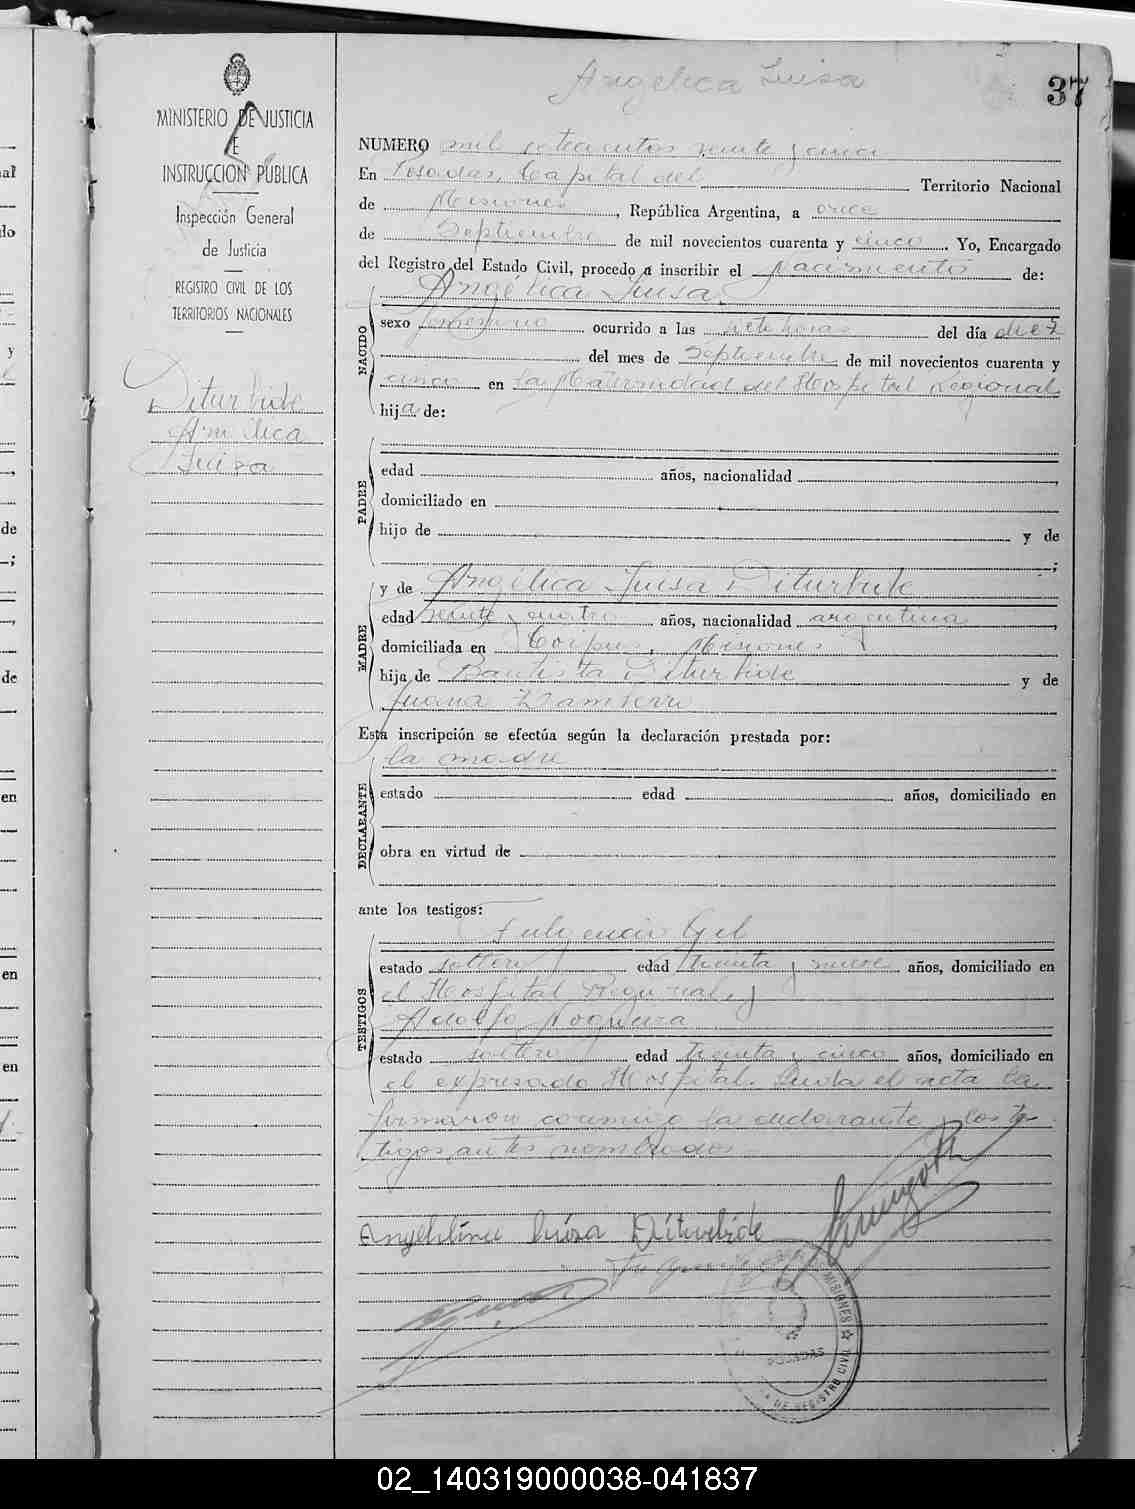 Angelica Luisa
37
MINISTERIO DE JUSTICIA
E
INSTRUCCION PUBLICA
Inspección General
de Justicia
REGISTRO CIVIL DE LOS
TERRITORIOS NACIONALES
Diturbide
Angelica
Luisa
NUMERO mil setecientos veinte y cinco
En Posadas, Capital del Territorio Nacional
de Misiones, República Argentina, a once
de Septiembre de mil novecientos cuarenta y cinco. Yo, Encargado
del Registro del Estado Civil, procedo a inscribir el Nacimiento de:
NACIDO
Angélica Luisa.
sexo femenino ocurrido a las siete horas del día diez
del mes de Septiembre de mil novecientos cuarenta y
cinco en la Maternidad del Hospital Regional
hija de:
PADRE
edad años, nacionalidad ,
domiciliado en
hijo de y de
;
MADRE
y de Angélica Luisa Diturbide
edad veinte y cuatro años, nacionalidad argentina,
domiciliada en Corpus, Misiones
hija de Bautista Diturbide y de
Juana
Esta inscripción se efectúa según la declaración prestada por:
DECLARANTE
la madre
estado edad años, domiciliado en
obra en virtud de
ante los testigos:
TESTIGOS
Fulgencio Gil
estado soltero edad treinta y nueve años, domiciliado en
el Hospital Regional, y
Adolfo Nogueira
estado soltero edad treinta y cinco años, domiciliado en
el expresado Hospital. Leida el acta la
firmaron conmigo la declarante y los tes-
tigos antes nombrados.
Luisa Diturbide
MISIONES
POSADAS
DE REGISTRO CIVIL
02_140319000038-041837